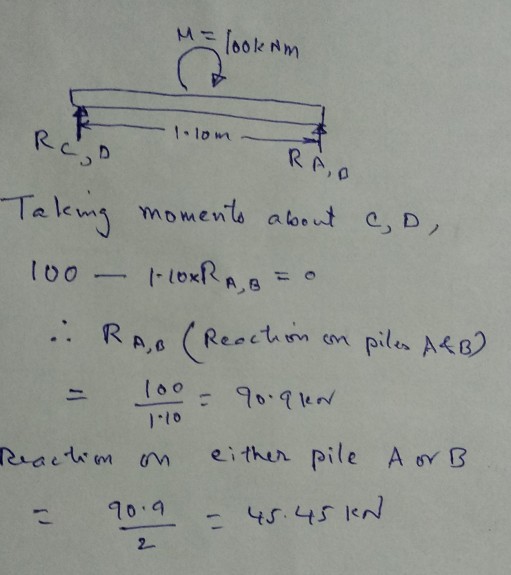 M = 100kNm
1.10m
R C, D
R A, B
Taking moments about C, D,
100 — 1.10xR A,B = 0
∴ R A,B (Reaction on piles A&B)
= 100/1.10 = 90.9 kN
Reaction on either pile A or B
= 90.9/2 = 45.45 kN